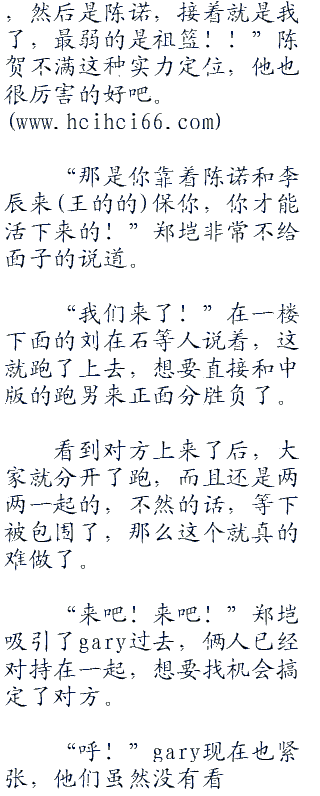 ，然后是陈诺，接着就是我
了，最弱的是祖篮！！”陈
贺不满这种实力定位，他也
很厉害的好吧。
(www.hcihci66.com)
“那是你靠着陈诺和李
辰来(王的的)保你，你才能
活下来的！”郑垲非常不给
面子的说道。
“我们来了！”在一楼
下面的刘在石等人说着，这
就跑了上去，想要直接和中
版的跑男来正面分胜负了。
看到对方上来了后，大
家就分开了跑，而且还是两
两一起的，不然的话，等下
被包围了，那么这个就真的
难做了。
“来吧！来吧！”郑垲
吸引了gary过去，俩人已经
对持在一起，想要找机会搞
定了对方。
“呼！”gary现在也紧
张，他们虽然没有看